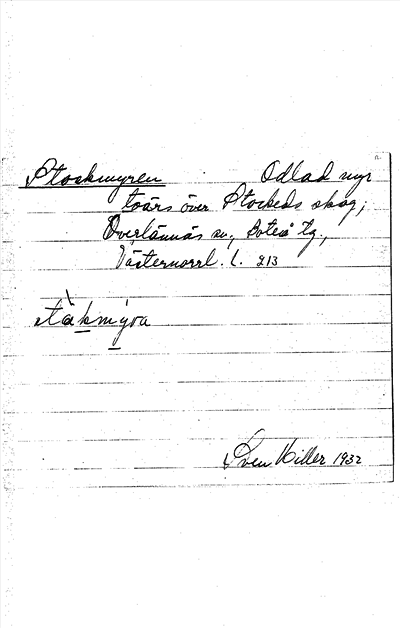 Stockmyren Odlad myr
tvärs över Stockeds skog;
Överlännäs sn., Boteå tg.,
Västernorrl. l. 213
Sven Hiller 1932